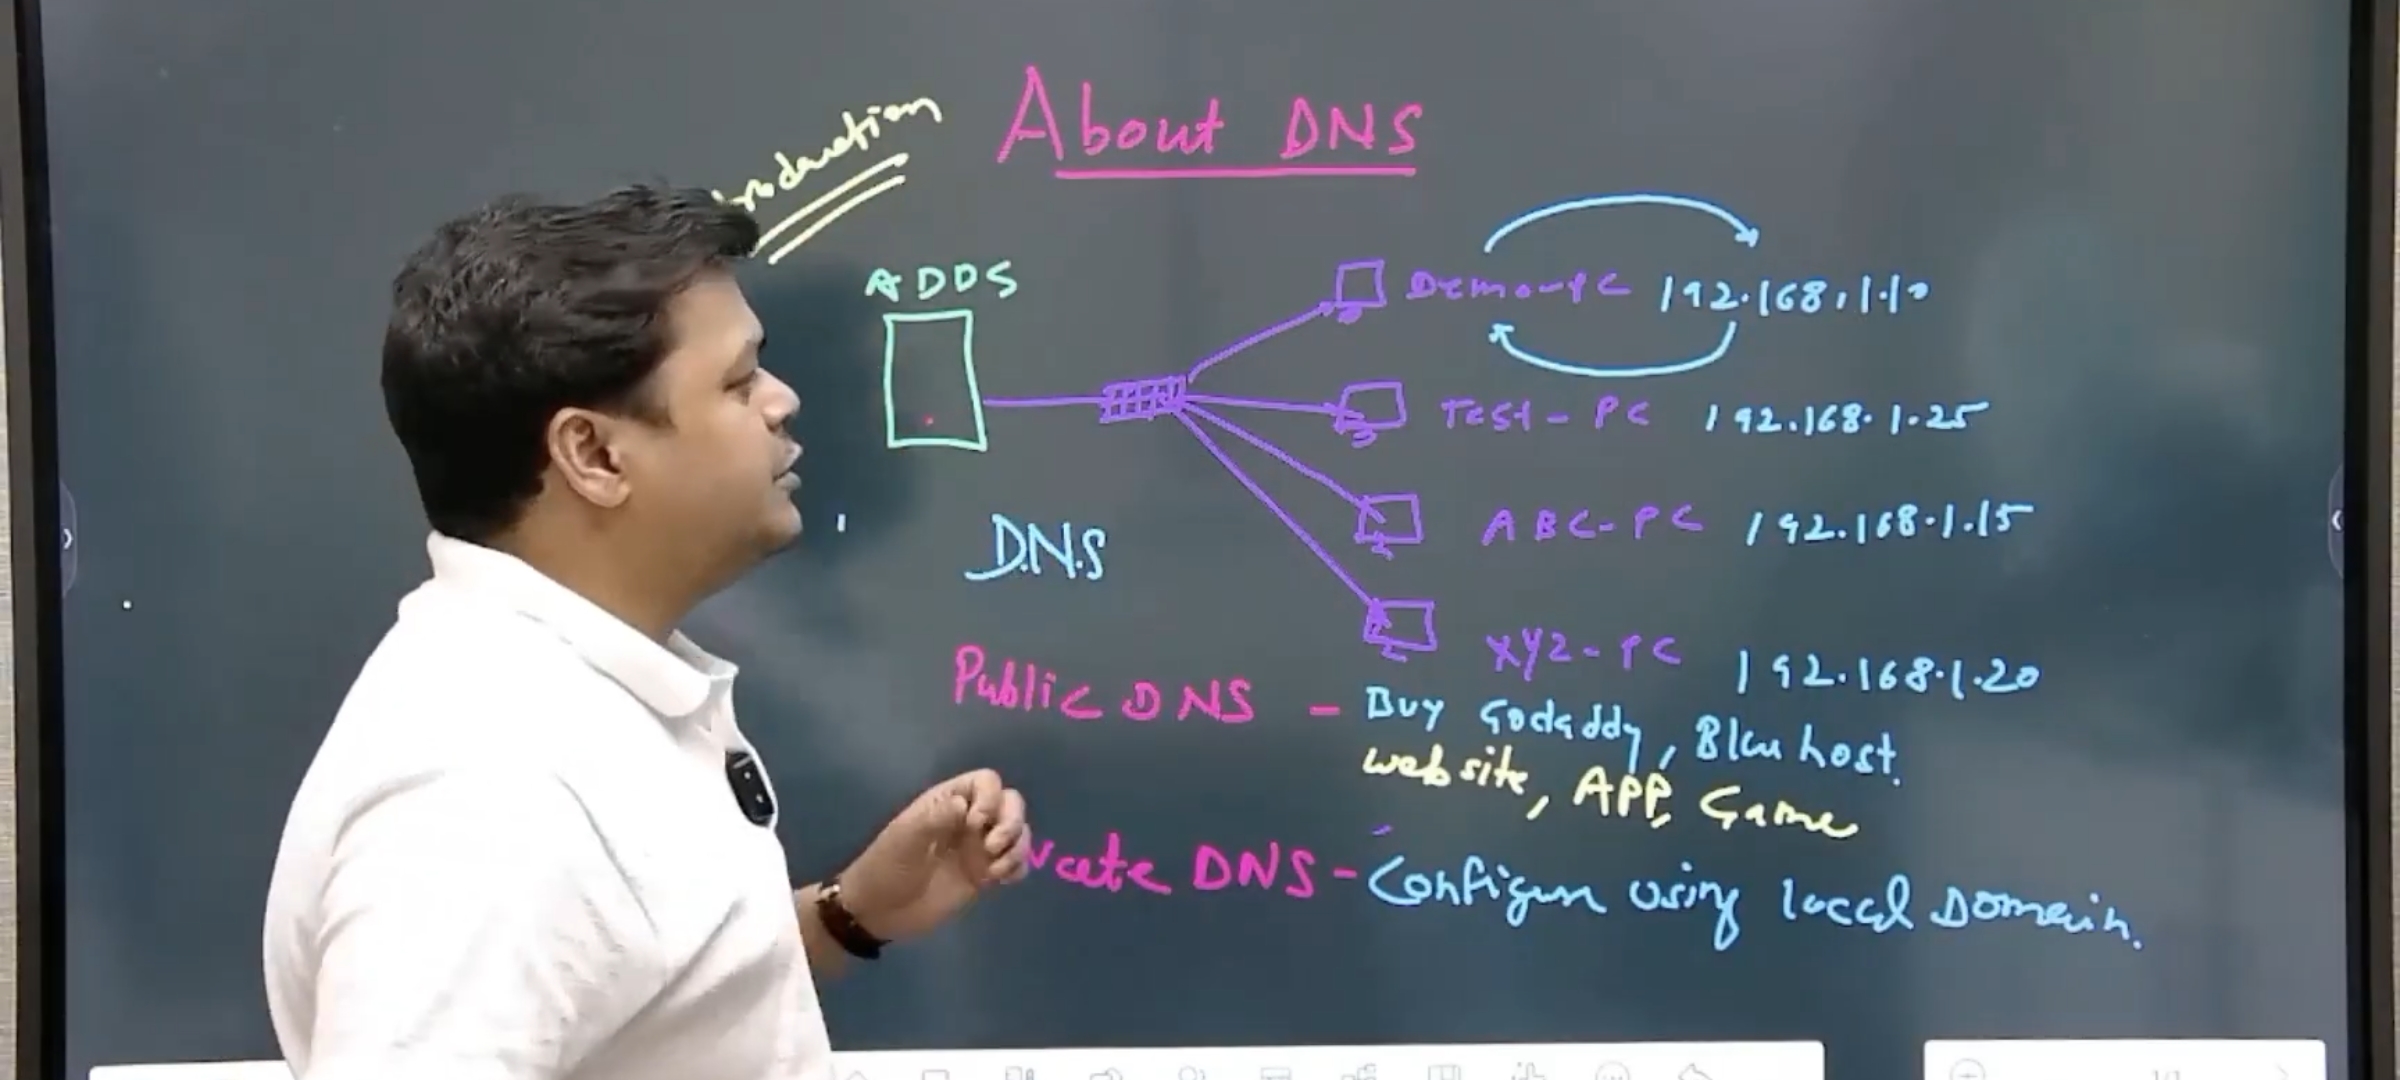 About DNS
ADDS
Demo-PC 192.168.1.10
Test-PC 192.168.1.25
ABC-PC 192.168.1.15
D.N.S
XYZ-PC 192.168.1.20
Public DNS - Buy Godaddy, Bluehost.
website, APP, Game
DNS - Configure using local Domain.